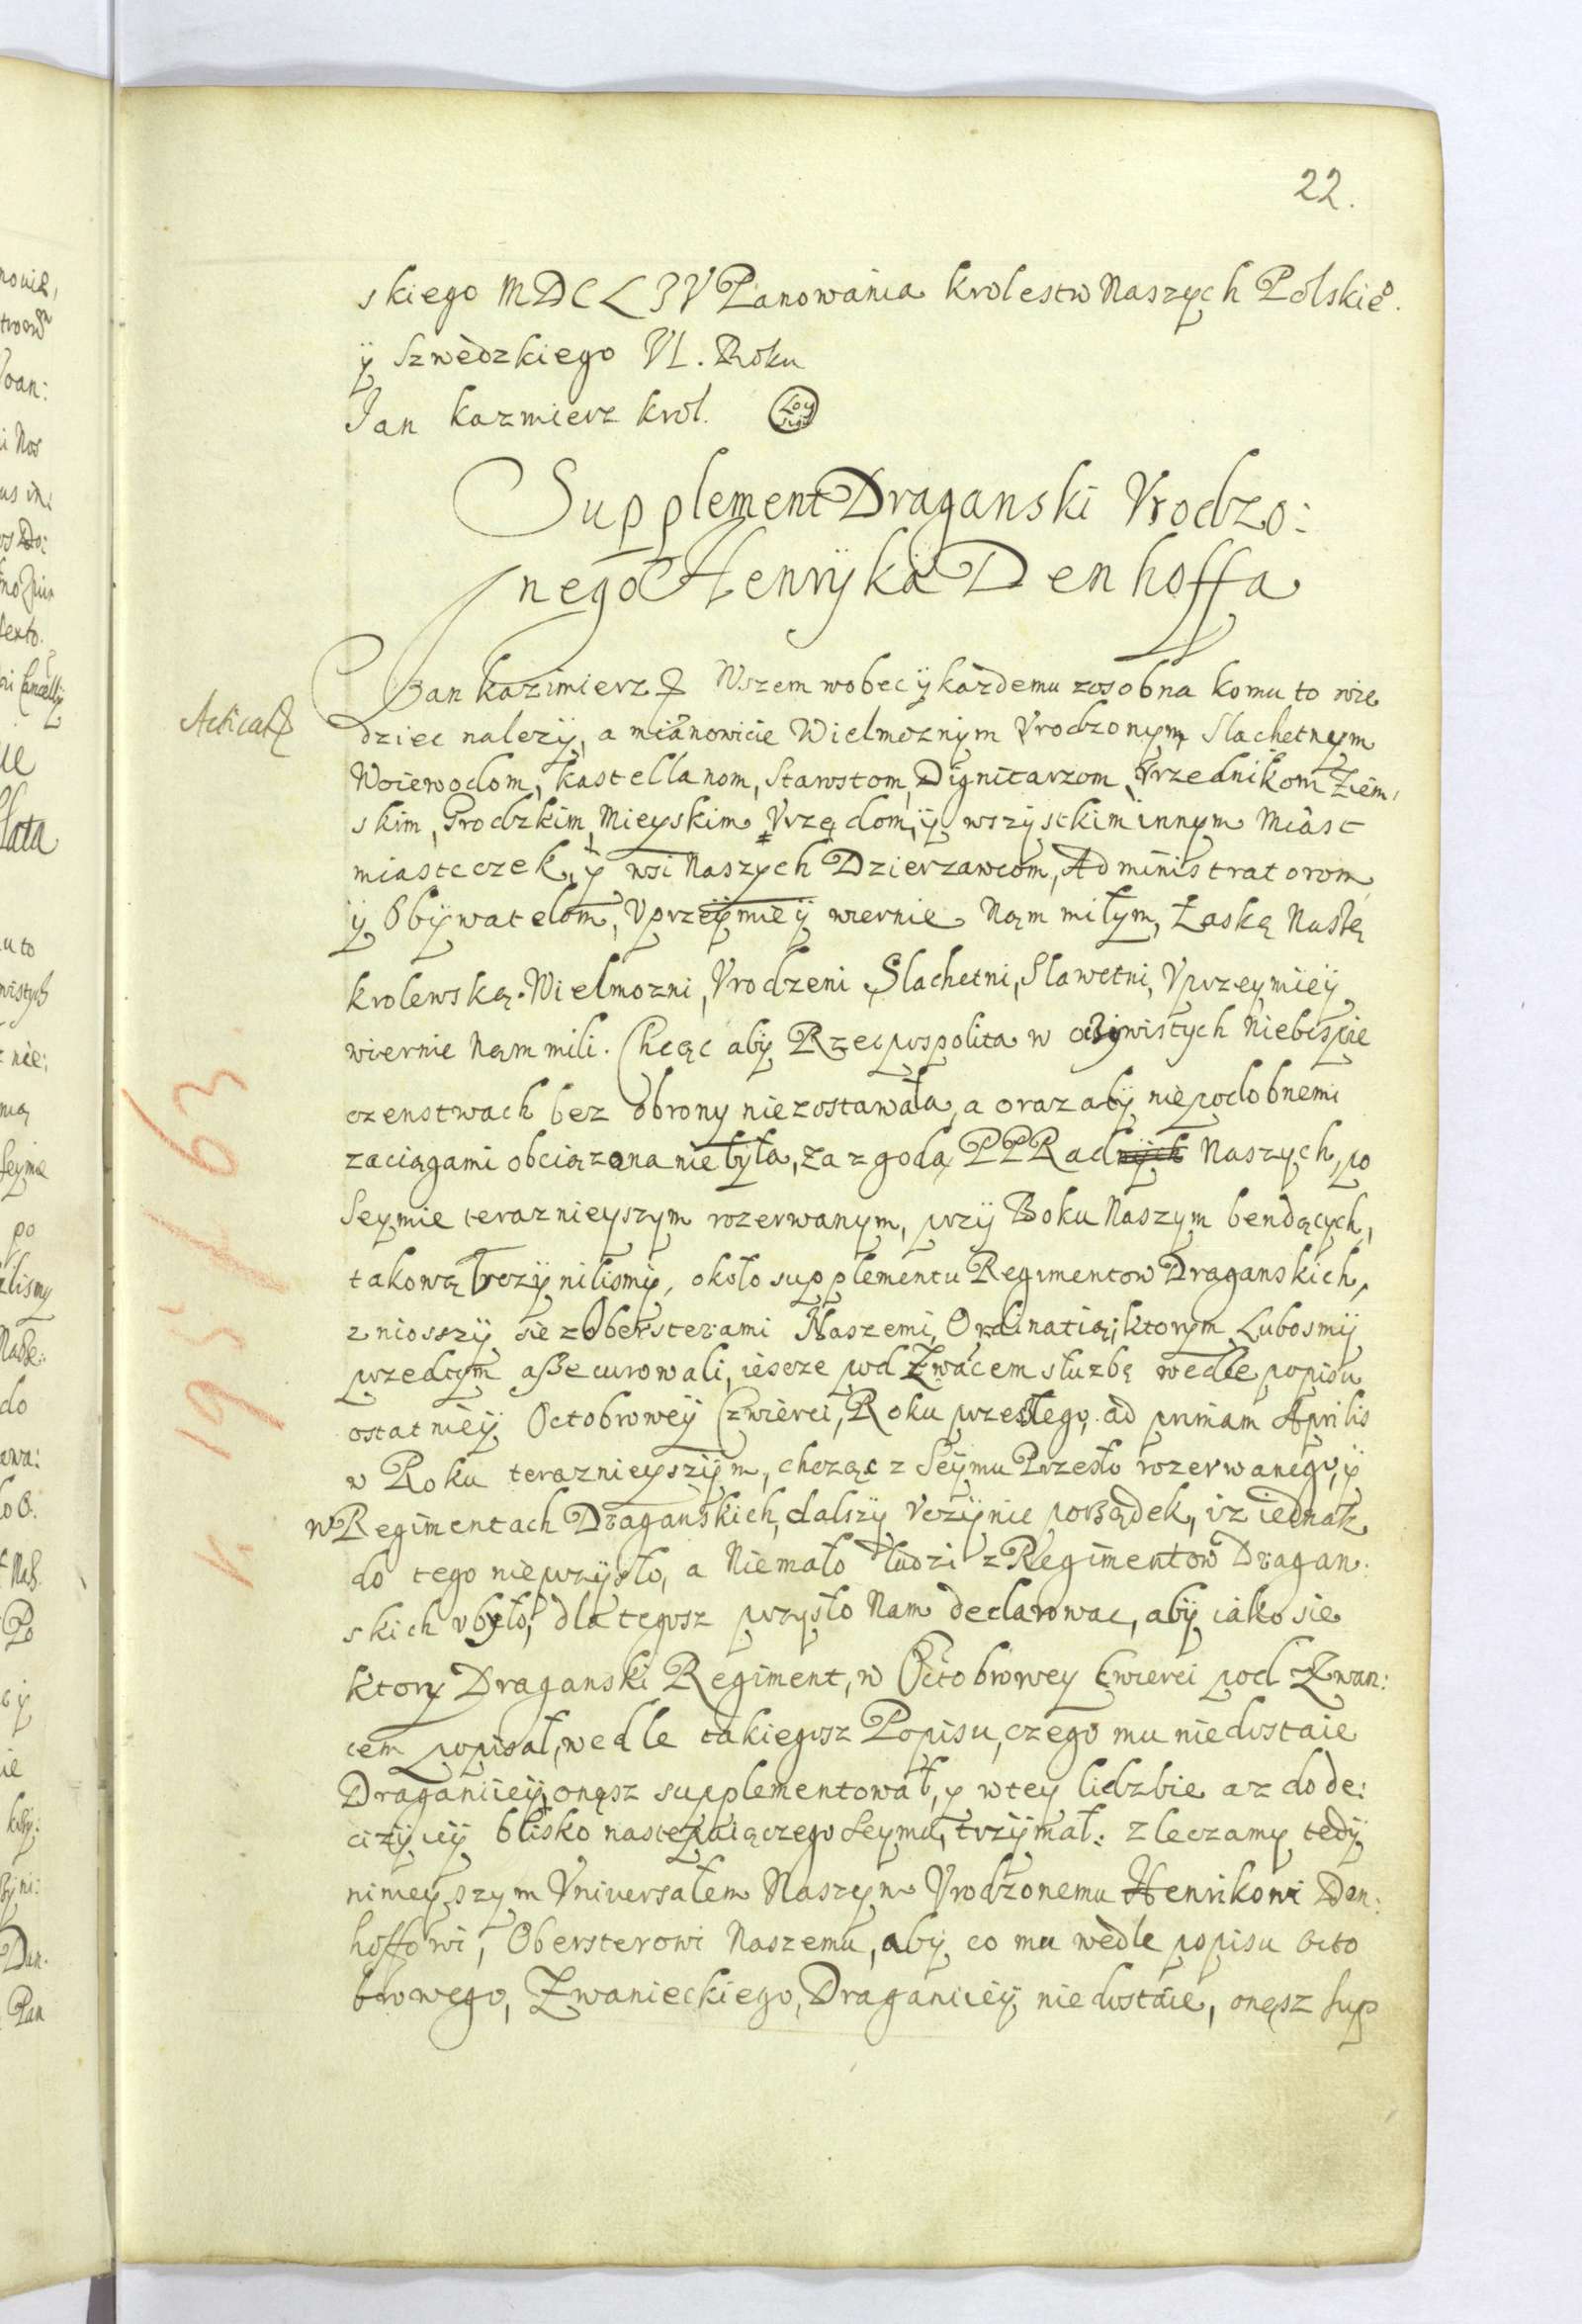 22.
skiego MDCLIV Panowánia krolestw Naszych Polskieo.
ÿ Szwedzkiego VI. Roku
Jan kazmierz krol.
Supplement Draganski Vrodzo:
nego Henrÿka Denhoffa
Jan kazimierz Wszem wobec ÿ káżdemu zosobna komu to wie
Acticat
dziec nalezÿ, a mianowicie Wielmoznÿm Vrodzonym Slachetnym
Woiewodom, kastellanom, Starostom, Dignitarzom, Vrzednikom Ziem,
skim, Grodzkim, Mieyskim Vrzędom, ÿ wszystkim innym Miast
miasteczek, ÿ wsi Naszych Dzierzawcom, Administratorom
ÿ Obÿwatelom, Vprzeÿmie ÿ wiernie Nąm miłym, Łaską Naszą
krolewską. Wielmozni, Vrodzeni Slachetni, Slawetni, Vprzeymie ÿ
wiernie Nąm mili. Chcąc abÿ Rzecpospolita w oczywistych Niebespie
czenstwach bez obrony niezostawała, a oraz abÿ niepodobnemi
zaciągami obciązona niebyła, za zgodą PPRadnÿch Naszych, po
Seymie teraznieyszym rozerwanym, przÿ Boku Naszym bendących,
takową Vczÿnilismÿ, około supplementu Regimentow Draganskich,
zniosszÿ sie z Obersterami Naszemi, Ordinatią; ktorym Lubosmÿ
przedtym assecurowali, iescze pod Zwáncem słuzbę wedle popisu
ostatnieÿ Octoboroweÿ Czwierci, Roku przeszłego, ad primam Aprilis
w Roku teraznieyszÿm, chcząc z Seÿmu Przeszło rozerwanego, ÿ
w Regimentach Draganskich, dalszÿ Vczÿnic porządek, iz iednak
do tego nieprzyszło, a Niemało ludzi z Regimentow Dragan:
skich vbyło, dla tegosz przyszło Nam declarowac, abÿ iako sie
ktory Draganski Regiment, w Octobrowey Cwierci pod Zwan:
cem popisał, wedle takiegosz Popisu, czego mu niedostaie
Draganiieÿ, onąsz supplementował, y w tey lidzbie az do de:
cizÿieÿ blisko nastepuiączego Seymu, trzÿmał: zleczamy tedÿ
ninieyszym Vniversałem Naszym Vrodzonemu Henrikowi Den:
hoffowi, Obersterowi Naszemu, abÿ co mu wedle popisu Octo
browego, Zwanieckiego, Draganiieÿ niedostáie, onąsz sup